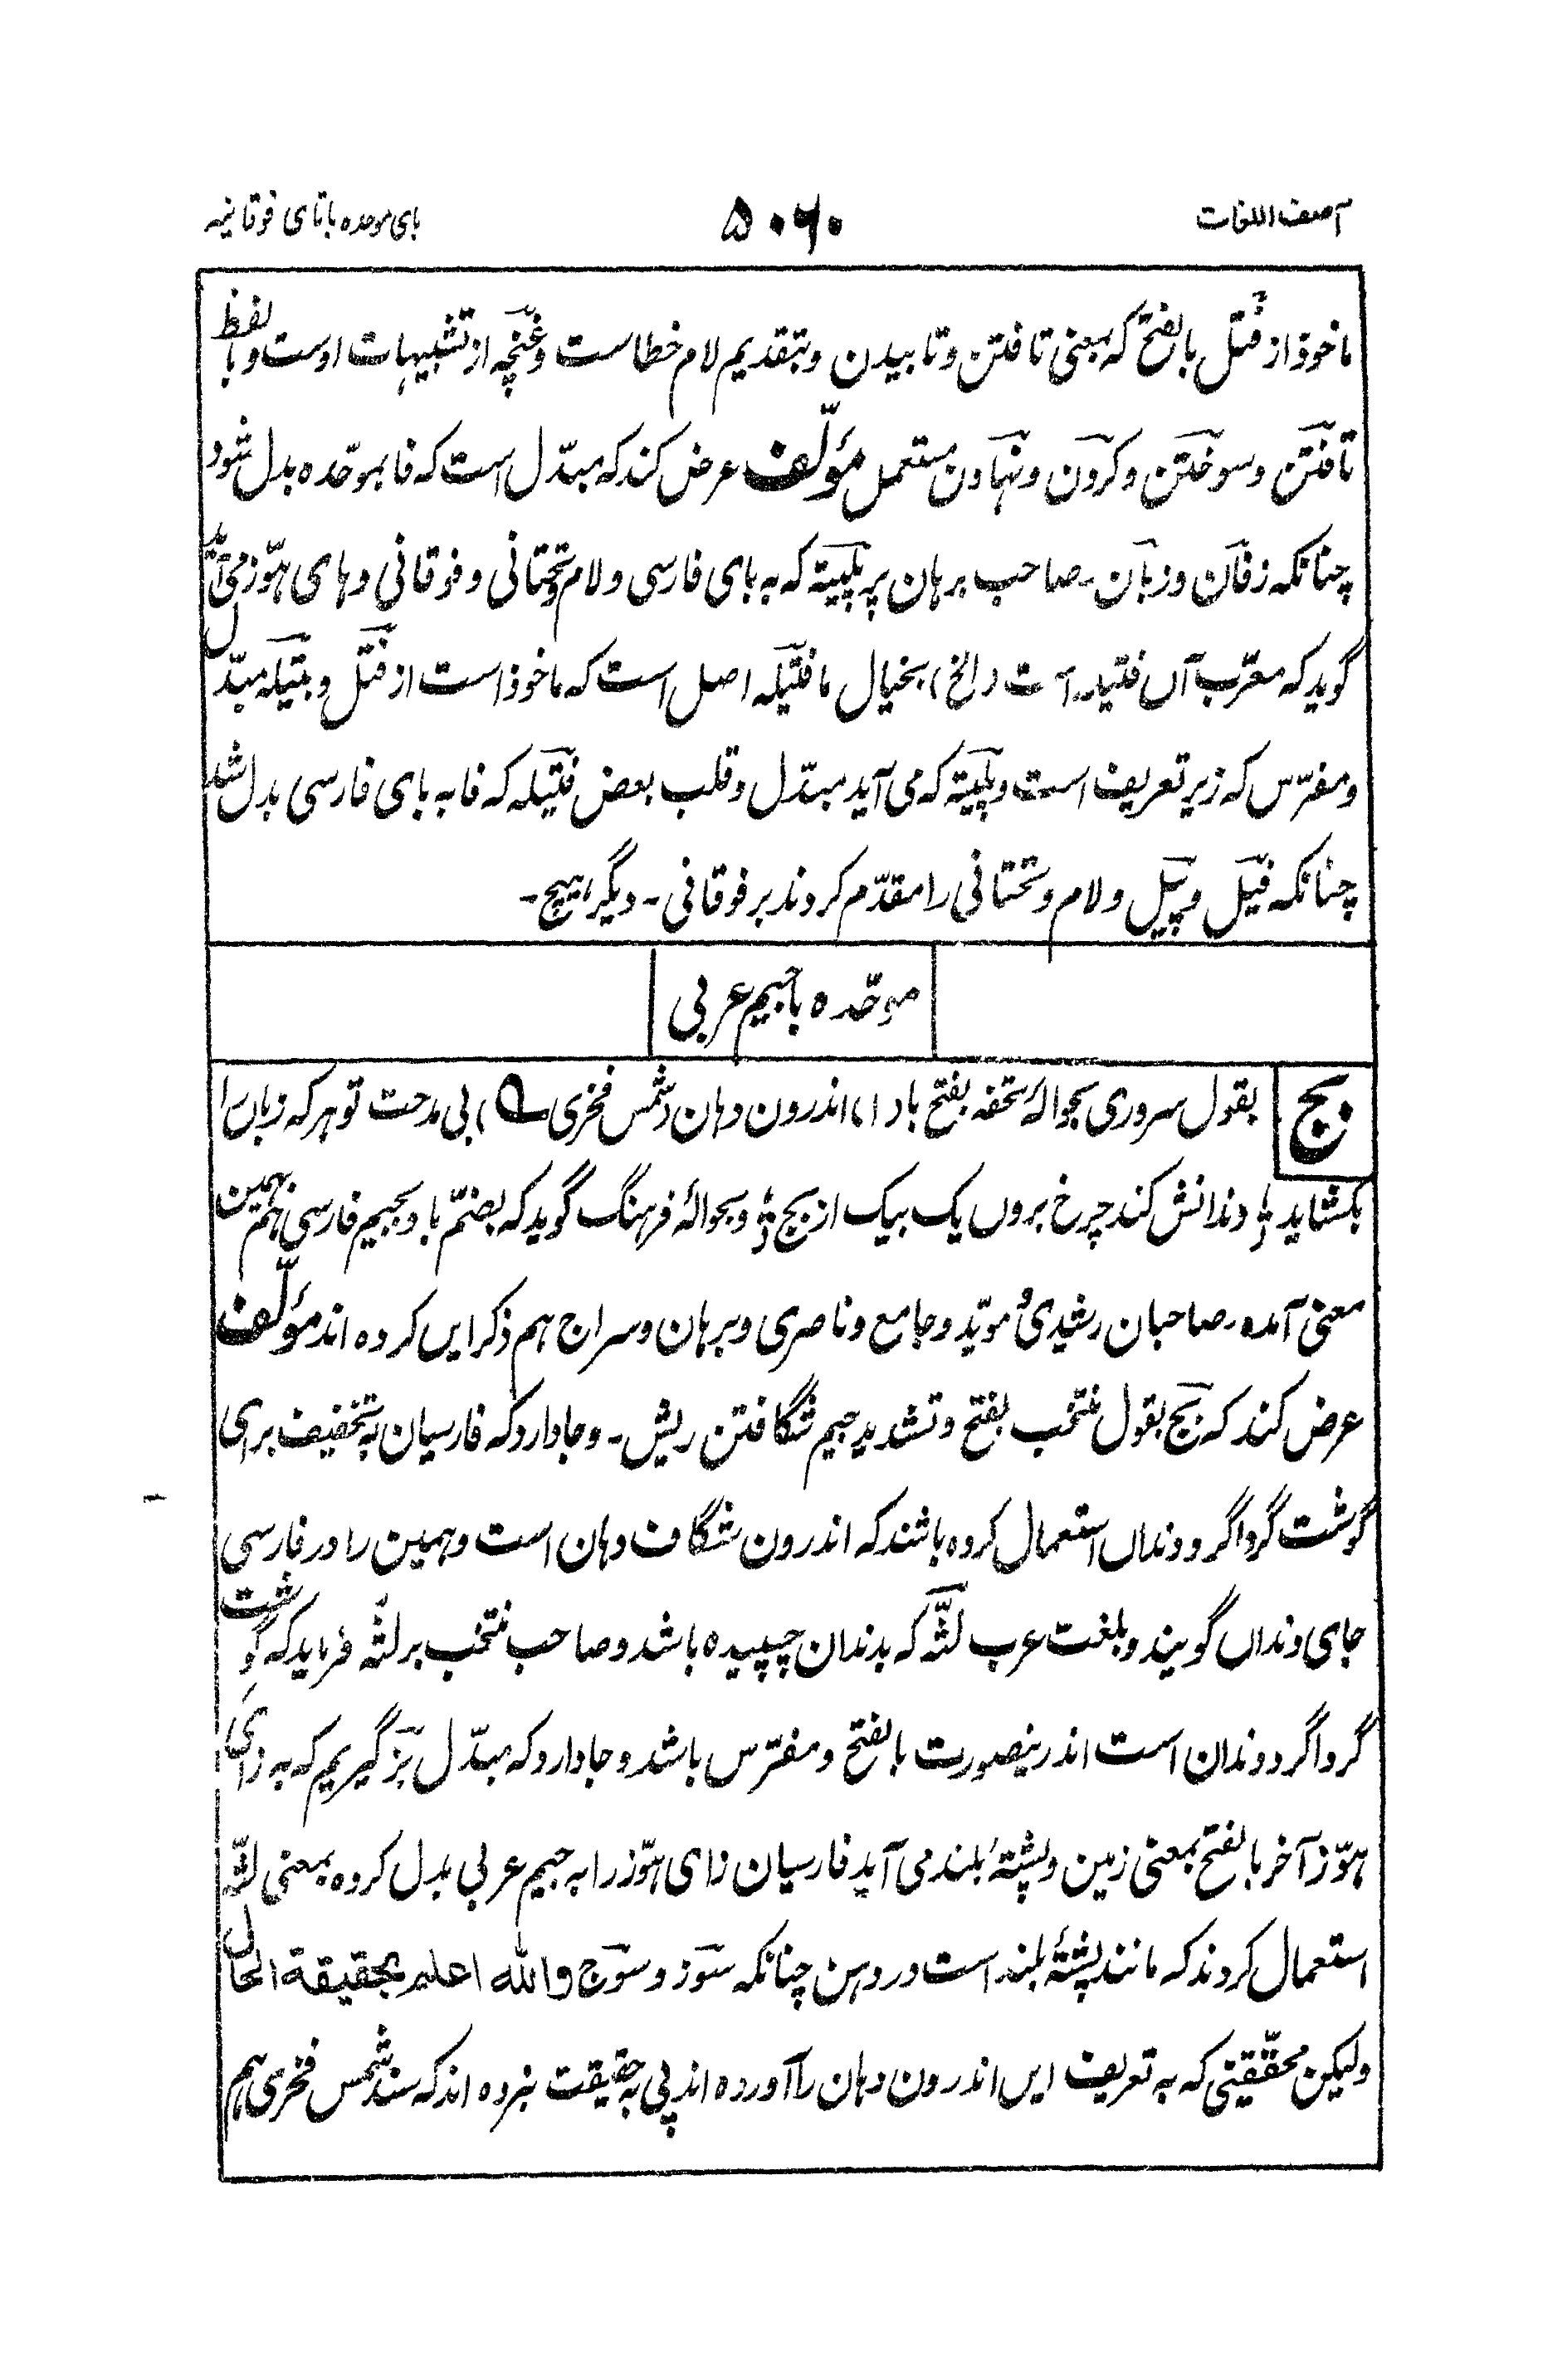 آصف اللغات
۵۰۶۰
بای موحده با تای فوقانیه
ماخوذ از فتل بالفتح که بمعنی تافتن و تابیدن و بتقدیم لام خطاست و غنچه از تشبیهات اوست و با لفظ
تافتن و سوختن و کردن و نهادن مستعمل مؤلّف عرض کند که مبدّل است که فا بموحّده بدل شود
چنانکه زفان و زبان ـ صاحب برهان بر پلیته که به بای فارسی و لام و تحتانی و فوقانی و های هوّز می آید
گوید که معرّب آں فتیله است (الخ) بخیال ما فتیله اصل است که ماخوذ است از فتل و بتیله مبدّل
و مفرّس که زیر تعریف است و پلیته که می آید مبدّل و قلب بعض فتیله که فا به بای فارسی بدل شد
چنانکه فیل و پیل و لام و تحتانی را مقدّم کردند بر فوقانی ـ دیگر ہیچ ـ
موحّده با جیم عربی
بج
بقول سروری بحوالۂ تحفه بفتح با (۱) اندرون دهان (شمس فخری ؎) بی مدحت تو هر که زبان را
بکشاید ؛ دندانش کند چرخ بروں یک بیک از بج ؛ و بحوالۂ فرهنگ گوید که بضمّ با و بجیم فارسی هم بهمین
معنی آمده ـ صاحبان رشیدی و مویّد و جامع و ناصری و برهان و سراج هم ذکر ایں کرده اند مؤلّف
عرض کند که بج بقول منتخب بفتح و تشدید جیم شگافتن ریش ـ و جا دارد که فارسیان به تخفیف برای
گوشت گرداگرد دنداں استعمال کرده باشند که اندرون شگاف دهان است و همین را در فارسی
جای دنداں گویند و بلغت عرب لثّه که بدندان چسپیده باشد و صاحب منتخب بر لثه فرماید که گوشت
گرداگرد دندان است اندرینصورت بالفتح و مفرّس باشد و جا دارد که مبدّل بز گیریم که به زای
هوّز آخر بالفتح بمعنی زمین و پشتۂ بلند می آید فارسیان زای هوّز را به جیم عربی بدل کرده بمعنی لثّه
استعمال کردند که مانند پشتۂ بلند است در دهن چنانکه سوز و سوج والله اعلم بحقیقة الحال
ولیکن محقّقینی که به تعریف ایں اندرون دهان را آورده اند پی به حقیقت نبرده اند که سند شمس فخری هم